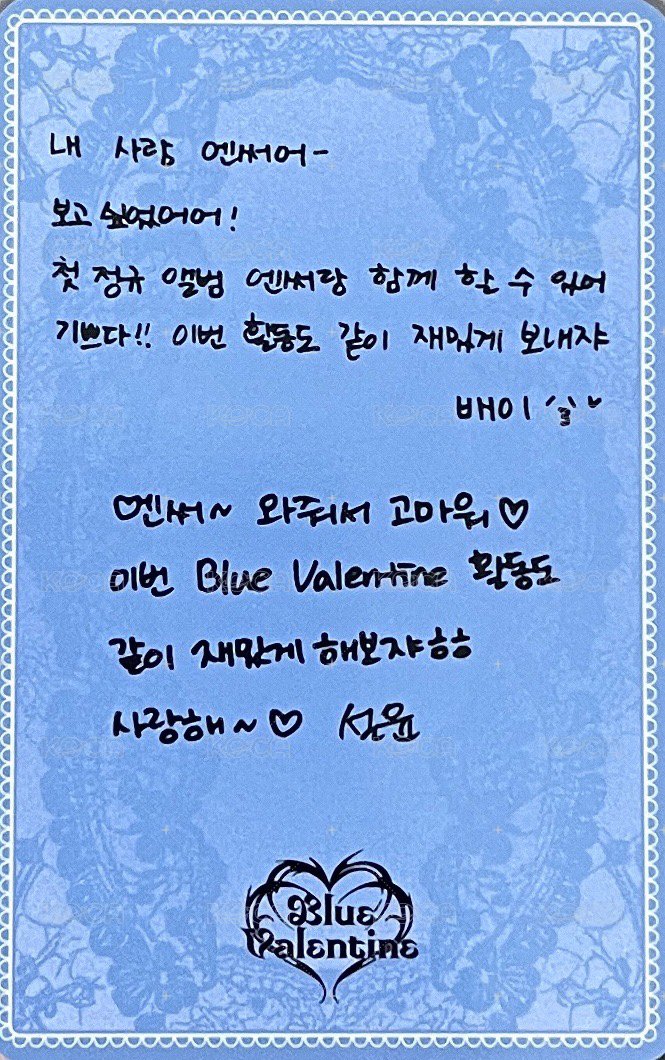 내 사람 엔써어-
보고 싶었어어!
첫 정규 앨범 엔써랑 함께 할 수 있어
기쁘다!! 이번 활동도 같이 재밌게 보내쟈
배이
♡엔써~ 와줘서 고마워♡
이번 Blue Valentine 활동도
같이 재밌게 해보쟈ㅎㅎ
사랑해~♡ 설윤
Blue
Valentine